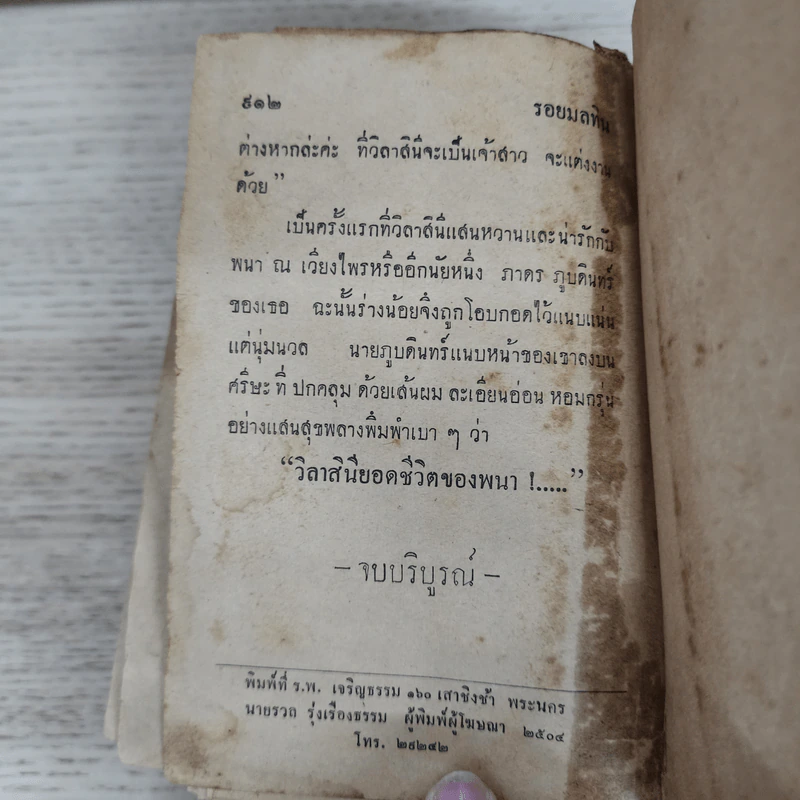 ๙๑๒
รอยมลทิน
ต่างหากล่ะค่ะ ที่วิลาสินีจะเป็นเจ้าสาว จะแต่งงาน
ด้วย”
เป็นครั้งแรกที่วิลาสินีแสนหวานและน่ารักกับ
พนา ณ เวียงไพรหรืออีกนัยหนึ่ง ภาดร ภูบดินทร์
ของเธอ ฉะนั้นร่างน้อยจึงถูกโอบกอดไว้แนบแน่น
แต่นุ่มนวล นายภูบดินทร์แนบหน้าของเขาลงบน
ศรีษะ ที่ ปกคลุม ด้วยเส้นผม ละเอียนอ่อน หอมกรุ่น
อย่างแสนสุขพลางพิมพำเบา ๆ ว่า
“วิลาสินียอดชีวิตของพนา !.....”
— จบบริบูรณ์ —
พิมพ์ที่ ร.พ. เจริญธรรม ๑๖๐ เสาชิงช้า พระนคร
นายรวล รุ่งเรืองธรรม ผู้พิมพ์ผู้โฆษณา ๒๕๐๔
โทร. ๒๘๒๔๒